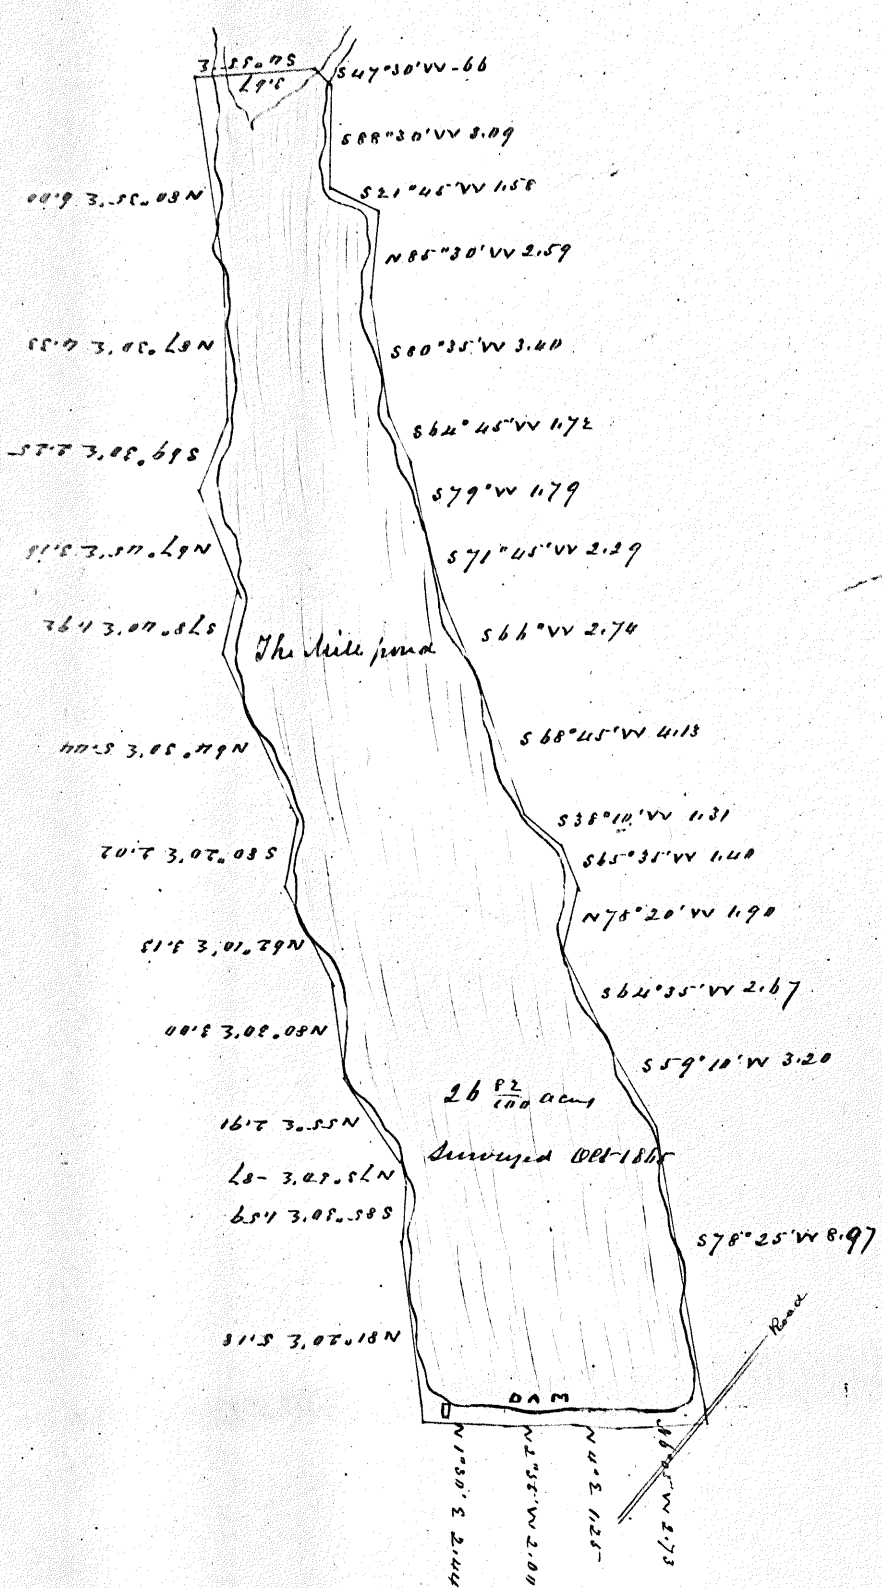 S4°55'E
3.67
S47°30'W -66
S88°30'W 3.09
S21°45'W 1.58
N85°30'W 2.59
S80°35'W 3.40
S64°45'W 1.72
S79°W 1.79
S71°45'W 2.29
S66°W 2.74
S68°45'W 4.13
S38°10'W 1.31
S65°35'W 1.40
N78°20'W 1.90
S64°35'W 2.67
S59°10'W 3.20
S78°25'W 8.97
Road
N80°35'E 6.00
N87°30'E 4.33
S69°30'E 2.25
N67°45'E 3.18
S78°40'E 1.92
N64°30'E 5.44
S80°20'E 2.02
N62°10'E 3.13
N80°30'E 3.00
N55°E 2.91
N75°30'E -87
S85°30'E 1.59
N81°20'E 5.18
The Mill pond
26 82/100 acres
Surveyed Oct 1865
DAM
N1°30'E 2.44
N2°35'W 2.00
N4°E 1.25
W 2.73